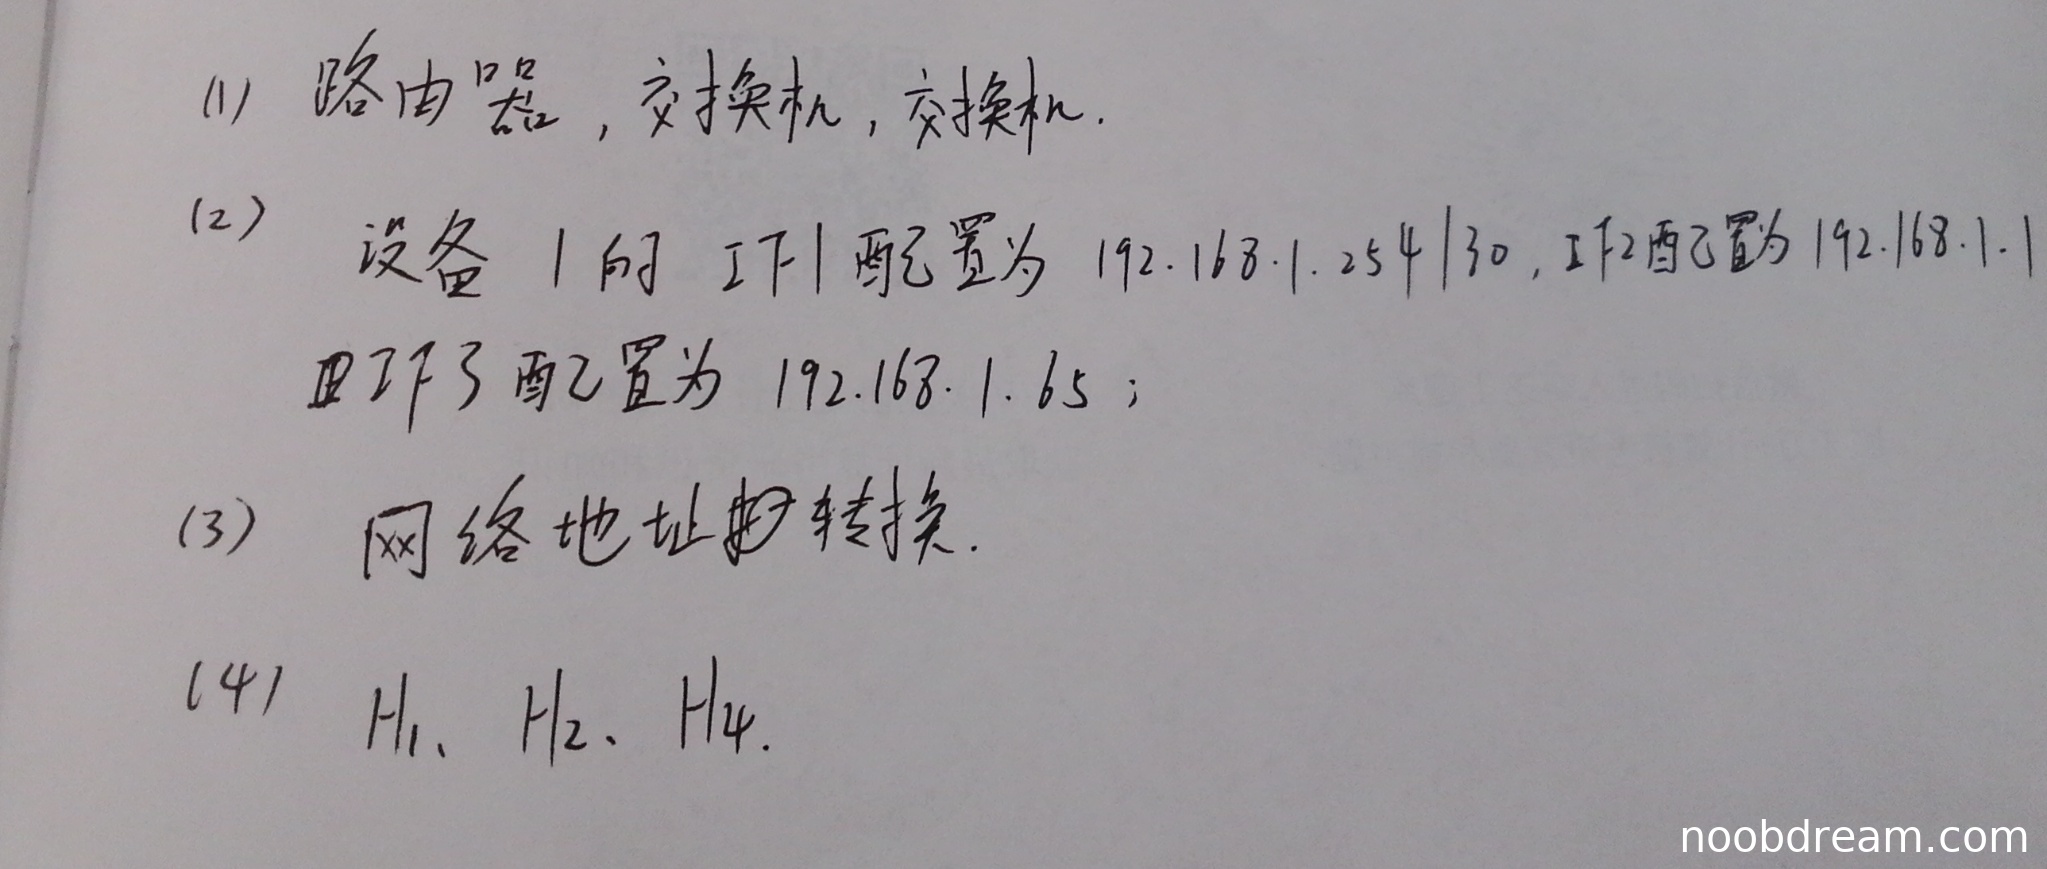 (1) 路由器，交换机，交换机.
(2) 设备1的IF1配置为192.168.1.254/30，IF2配置为192.168.1.1
IF3配置为192.168.1.65；
(3) 网络地址转换.
(4) H1、H2、H4.
noobdream.com